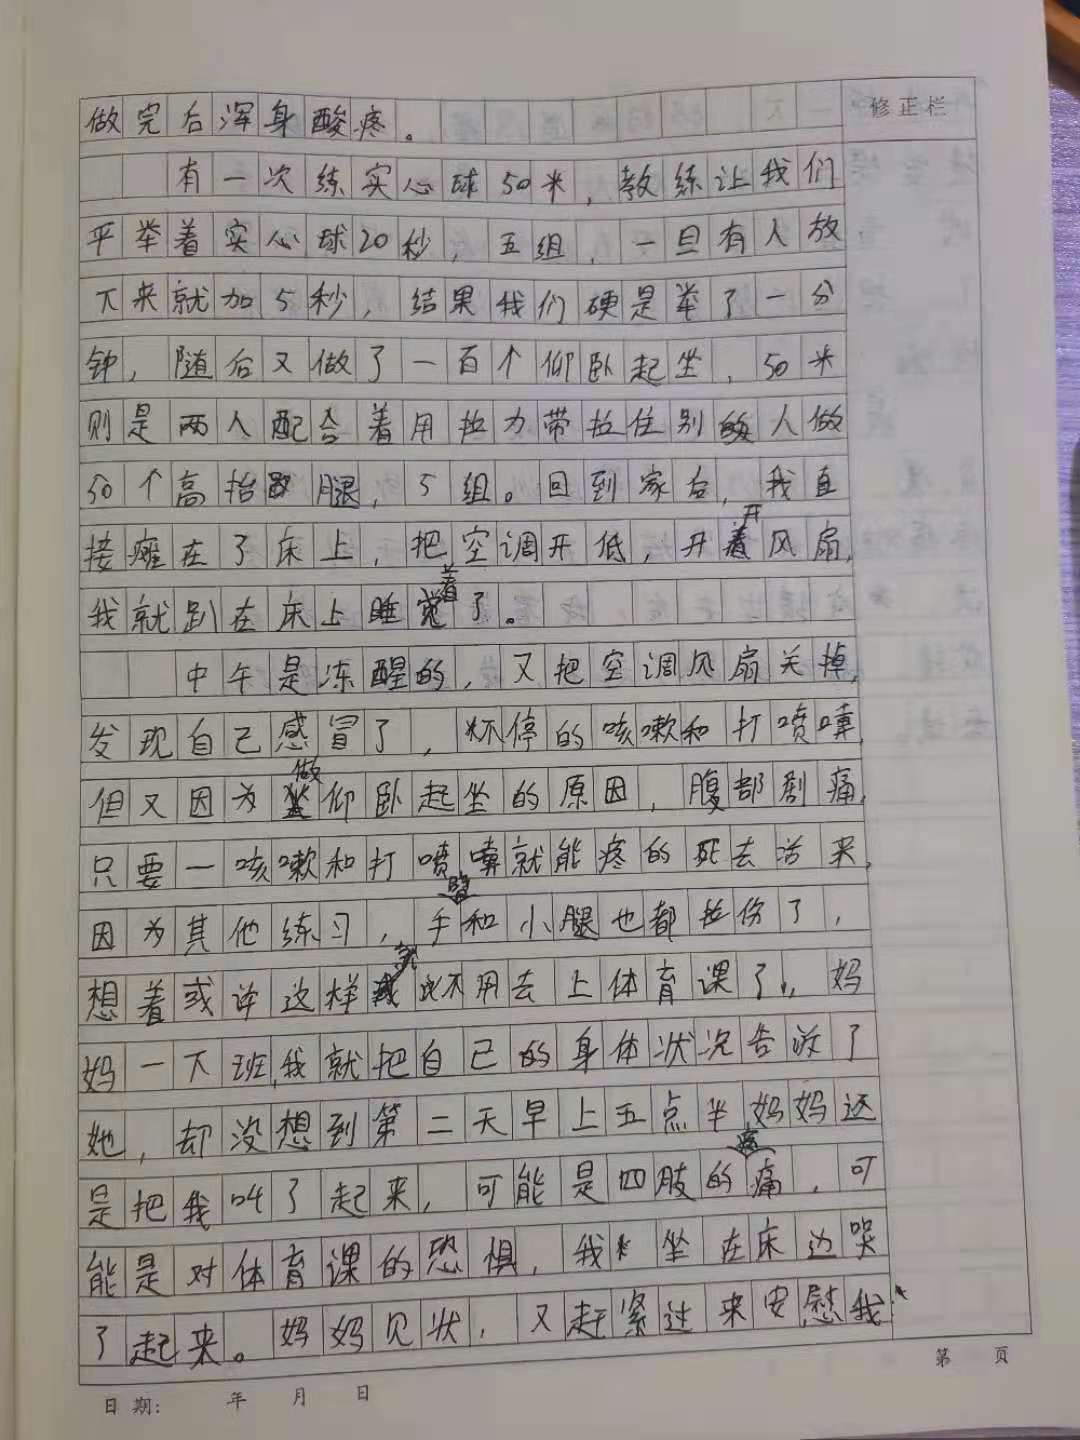 做完后浑身酸疼。
修正栏
有一次练实心球50米,教练让我们
平举着实心球20秒,五组,一旦有人放
下来就加5秒,结果我们硬是举了一分
钟,随后又做了一百个仰卧起坐,50米
则是两人配合着用拉力带拉住别的人做
50个高抬腿,5组。回到家后,我直
接瘫在了床上,把空调开低,开开风扇,
我就趴在床上睡着了。
中午是冻醒的,又把空调风扇关掉,
发现自己感冒了,不停的咳嗽和打喷嚏,
但又因为做仰卧起坐的原因,腹部剧痛,
只要一咳嗽和打喷嚏就能疼的死去活来,
因为其他练习,手臂和小腿也都拉伤了,
想着或许这样就不用去上体育课了,妈
妈一下班,我就把自己的身体状况告诉了
她,却没想到第二天早上五点半,妈妈还
是把我叫了起来,可能是四肢的疼痛,可
能是对体育课的恐惧,我坐在床边哭
了起来。妈妈见状,又赶紧过来安慰我,
第 页
日期: 年 月 日